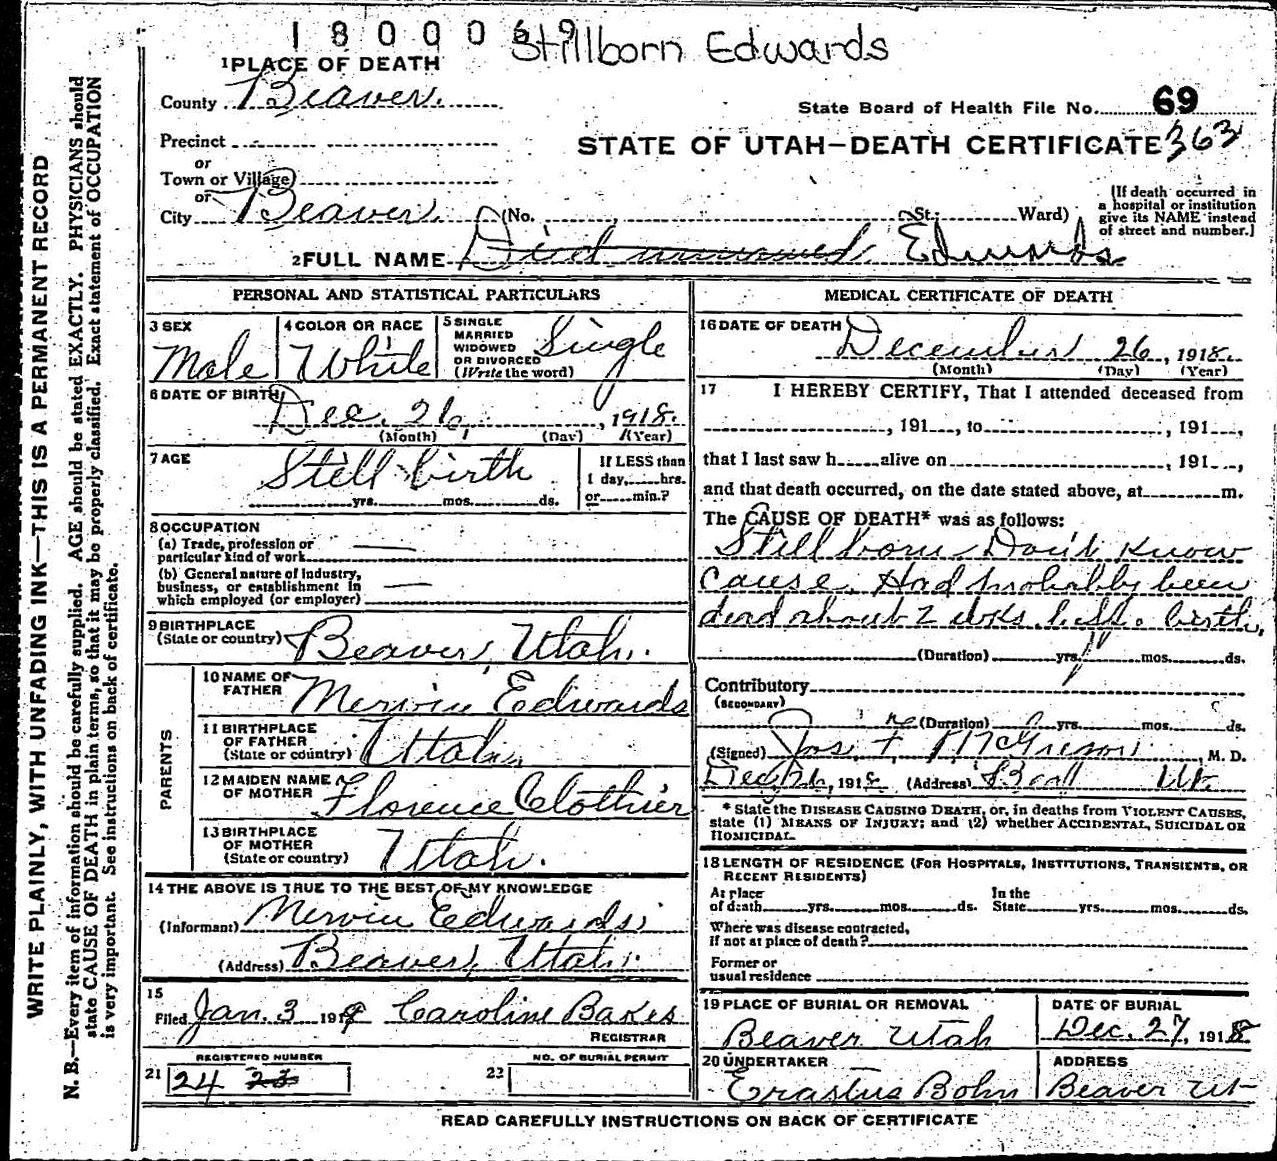 1 8 0 0 0 6 9
Stillborn Edwards
1 PLACE OF DEATH
County Beaver.
State Board of Health File No. 69
Precinct
STATE OF UTAH—DEATH CERTIFICATE 363
or
Town or Village
or
City Beaver. (No. St.; Ward)
(If death occurred in
a hospital or institution
give its NAME instead
of street and number.]
2 FULL NAME Died unnamed Edwards
WRITE PLAINLY, WITH UNFADING INK—THIS IS A PERMANENT RECORD
N. B.—Every item of information should be carefully supplied. AGE should be stated EXACTLY. PHYSICIANS should
state CAUSE OF DEATH in plain terms, so that it may be properly classified. Exact statement of OCCUPATION
is very important. See instructions on back of certificate.
PERSONAL AND STATISTICAL PARTICULARS
3 SEX
Male
4 COLOR OR RACE
White
5 SINGLE
MARRIED
WIDOWED
OR DIVORCED
(Write the word)
Single
6 DATE OF BIRTH
Dec. 26, 1918.
(Month) (Day) (Year)
7 AGE
Still birth
yrs. mos. ds.
If LESS than
1 day, hrs.
or min.?
8 OCCUPATION
(a) Trade, profession or
particular kind of work
(b) General nature of industry,
business, or establishment in
which employed (or employer)
9 BIRTHPLACE
(State or country) Beaver, Utah.
PARENTS
10 NAME OF
FATHER Mervin Edwards
11 BIRTHPLACE
OF FATHER
(State or country) Utah.
12 MAIDEN NAME
OF MOTHER Florence Clothier
13 BIRTHPLACE
OF MOTHER
(State or country) Utah.
14 THE ABOVE IS TRUE TO THE BEST OF MY KNOWLEDGE
(Informant) Mervin Edwards
(Address) Beaver, Utah.
15
Filed Jan. 3 1919 Caroline Bakes
REGISTRAR
REGISTERED NUMBER
21 24 23
NO. OF BURIAL PERMIT
22
MEDICAL CERTIFICATE OF DEATH
16 DATE OF DEATH December 26, 1918.
(Month) (Day) (Year)
17 I HEREBY CERTIFY, That I attended deceased from
, 191 , to , 191 ,
that I last saw h alive on , 191 ,
and that death occurred, on the date stated above, at m.
The CAUSE OF DEATH* was as follows:
Still born – Don't know
cause. Had probably been
dead about 2 wks. before birth.
(Duration) yrs. mos. ds.
Contributory
(SECONDARY)
(Duration) yrs. mos. ds.
(Signed) Jos. F. McGregor M. D.
Dec. 26, 1918 (Address) Ut.
* State the DISEASE CAUSING DEATH, or, in deaths from VIOLENT CAUSES,
state (1) MEANS OF INJURY; and (2) whether ACCIDENTAL, SUICIDAL OR
HOMICIDAL.
18 LENGTH OF RESIDENCE (FOR HOSPITALS, INSTITUTIONS, TRANSIENTS, OR
RECENT RESIDENTS)
At place In the
of death yrs. mos. ds. State yrs. mos. ds.
Where was disease contracted,
if not at place of death?
Former or
usual residence
19 PLACE OF BURIAL OR REMOVAL
Beaver Utah
DATE OF BURIAL
Dec. 27, 1918
20 UNDERTAKER
Erastus Bohn
ADDRESS
Beaver Ut
READ CAREFULLY INSTRUCTIONS ON BACK OF CERTIFICATE